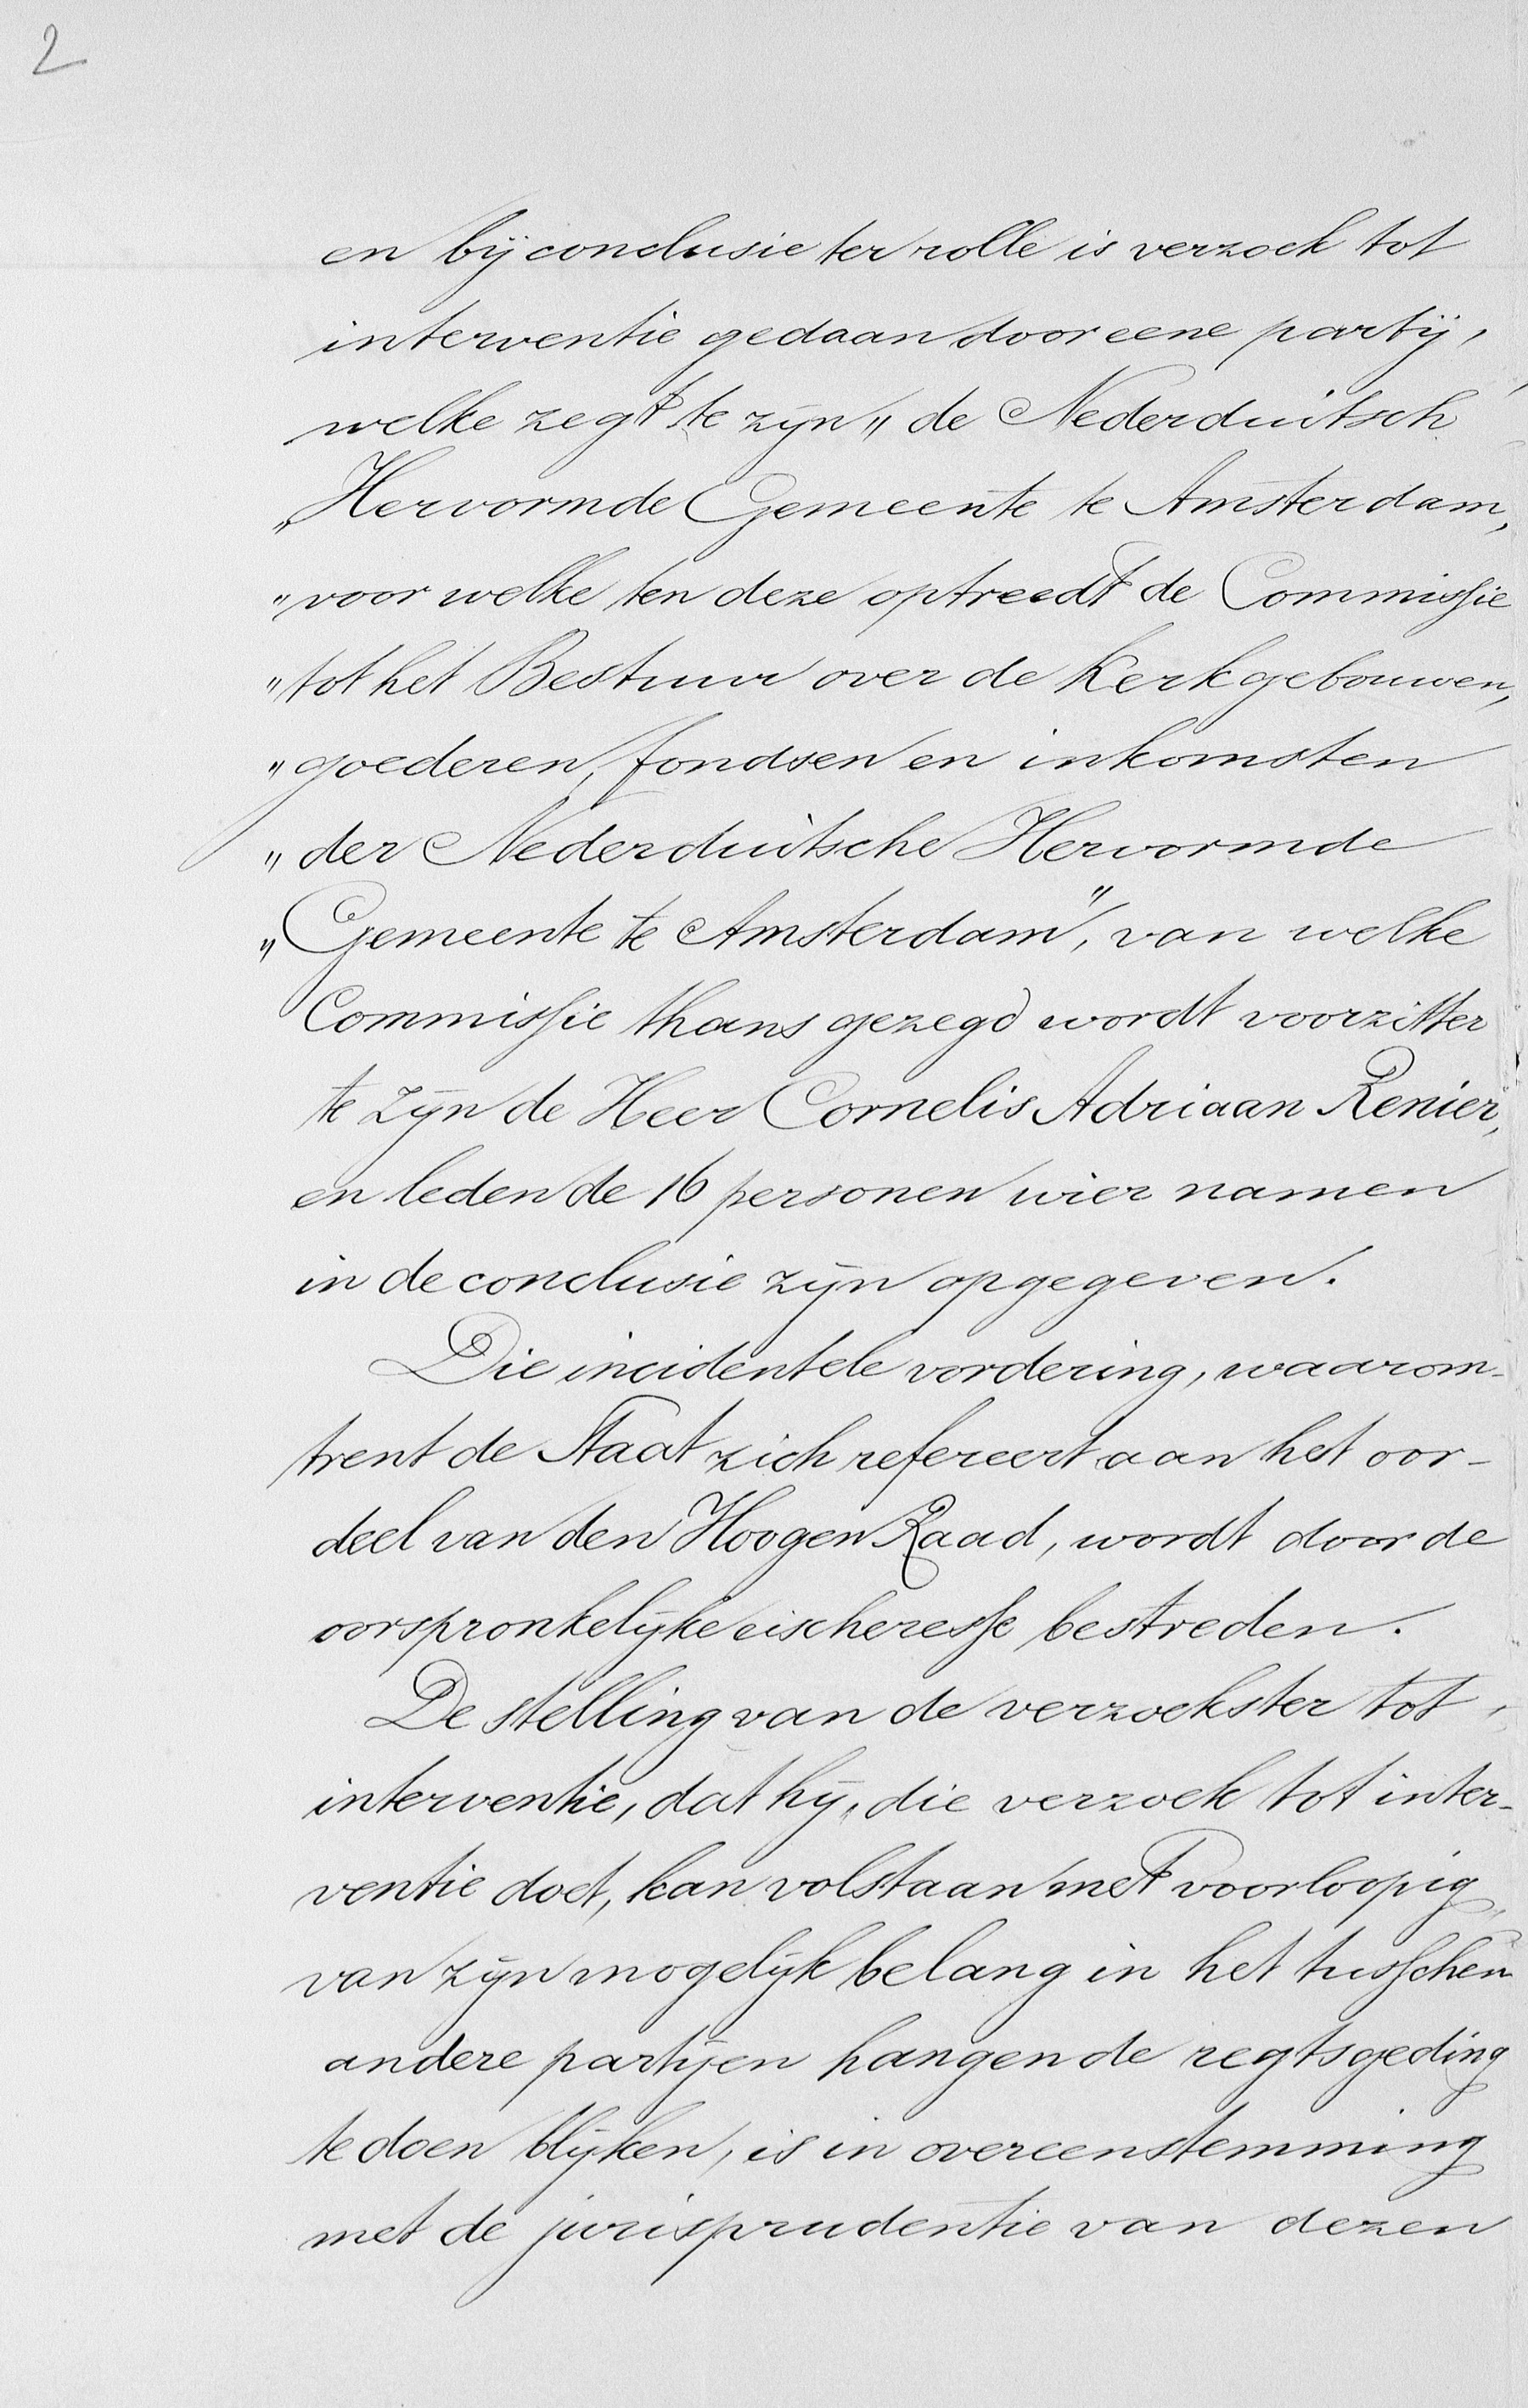 2
en bij conclusie ter rolle is verzoek tot
interventie gedaan door eene partij,
welke zegt te zijn „ de Nederduitsch
„Hervormde Gemeente te Amsterdam,
„voor welke ten deze optreedt de Commissie
„tot het Bestuur over de kerkgebouwen,
„goederen, fondsen en inkomsten
„der Nederduitsche Hervormde
„Gemeente te Amsterdam”, van welke
Commissie thans gezegd wordt voorzitter
te zijn de Heer Cornelis Adriaan Renier,
en leden de 16 personen wier namen
in de conclusie zijn opgegeven.
Die incidentele vordering, waarom-
trent de Staat zich refereert aan het oor-
deel van den Hoogen Raad, wordt door de
oorspronkelijke eischeresse bestreden.
De stelling van de verzoekster tot
interventie, dat hij, die verzoek tot inter-
ventie doet, kan volstaan met voorloopig
van zijn mogelijk belang in het tusschen
andere partijen hangende regtsgeding
te doen blijken, is in overeenstemming
met de jurisprudentie van dezen